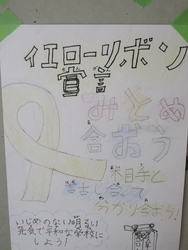 イエローリボン
賞言
みとめ
合おう
相手と
はなし合って
わかり合おう!
いじめのない明るい
元気で平和な学校に
しよう!